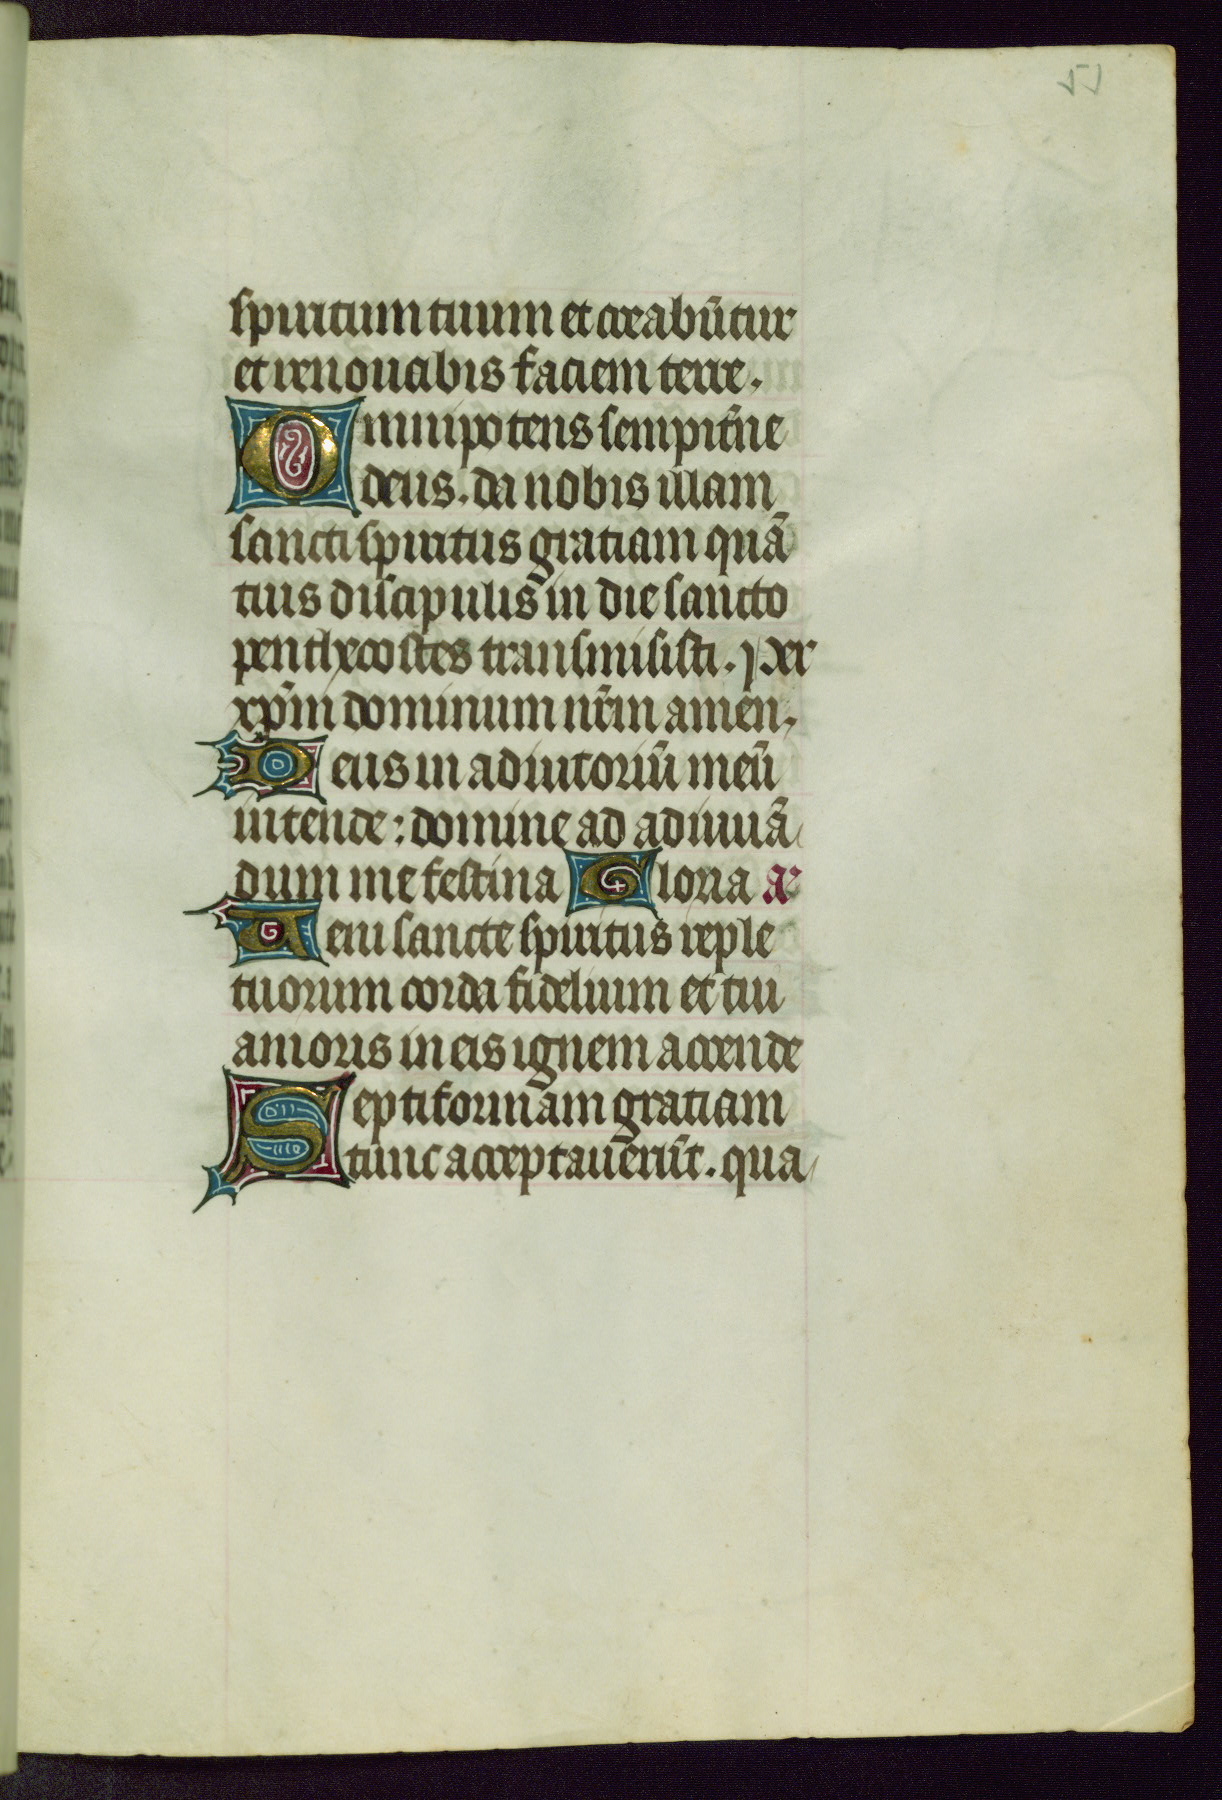 51
spiritum tuum et creabūtur
et renouabis faciem terre.
Omnipotens sempit̄ne
deus. da nobis illam
sancti spiritus gratiam quā
tuis discipulis in die sancto
penthecostes transmisisti. Per
xp̄m dominum nr̄m amen.
Deus in adiutoriū meū
intende: domine ad adiuuā
dum me festina Gloria
Ueni sancte spiritus reple
tuorum corda fidelium et tui
amoris in eis ignem accende
Septiformam gratiam
tunc acceptauerūt. qua